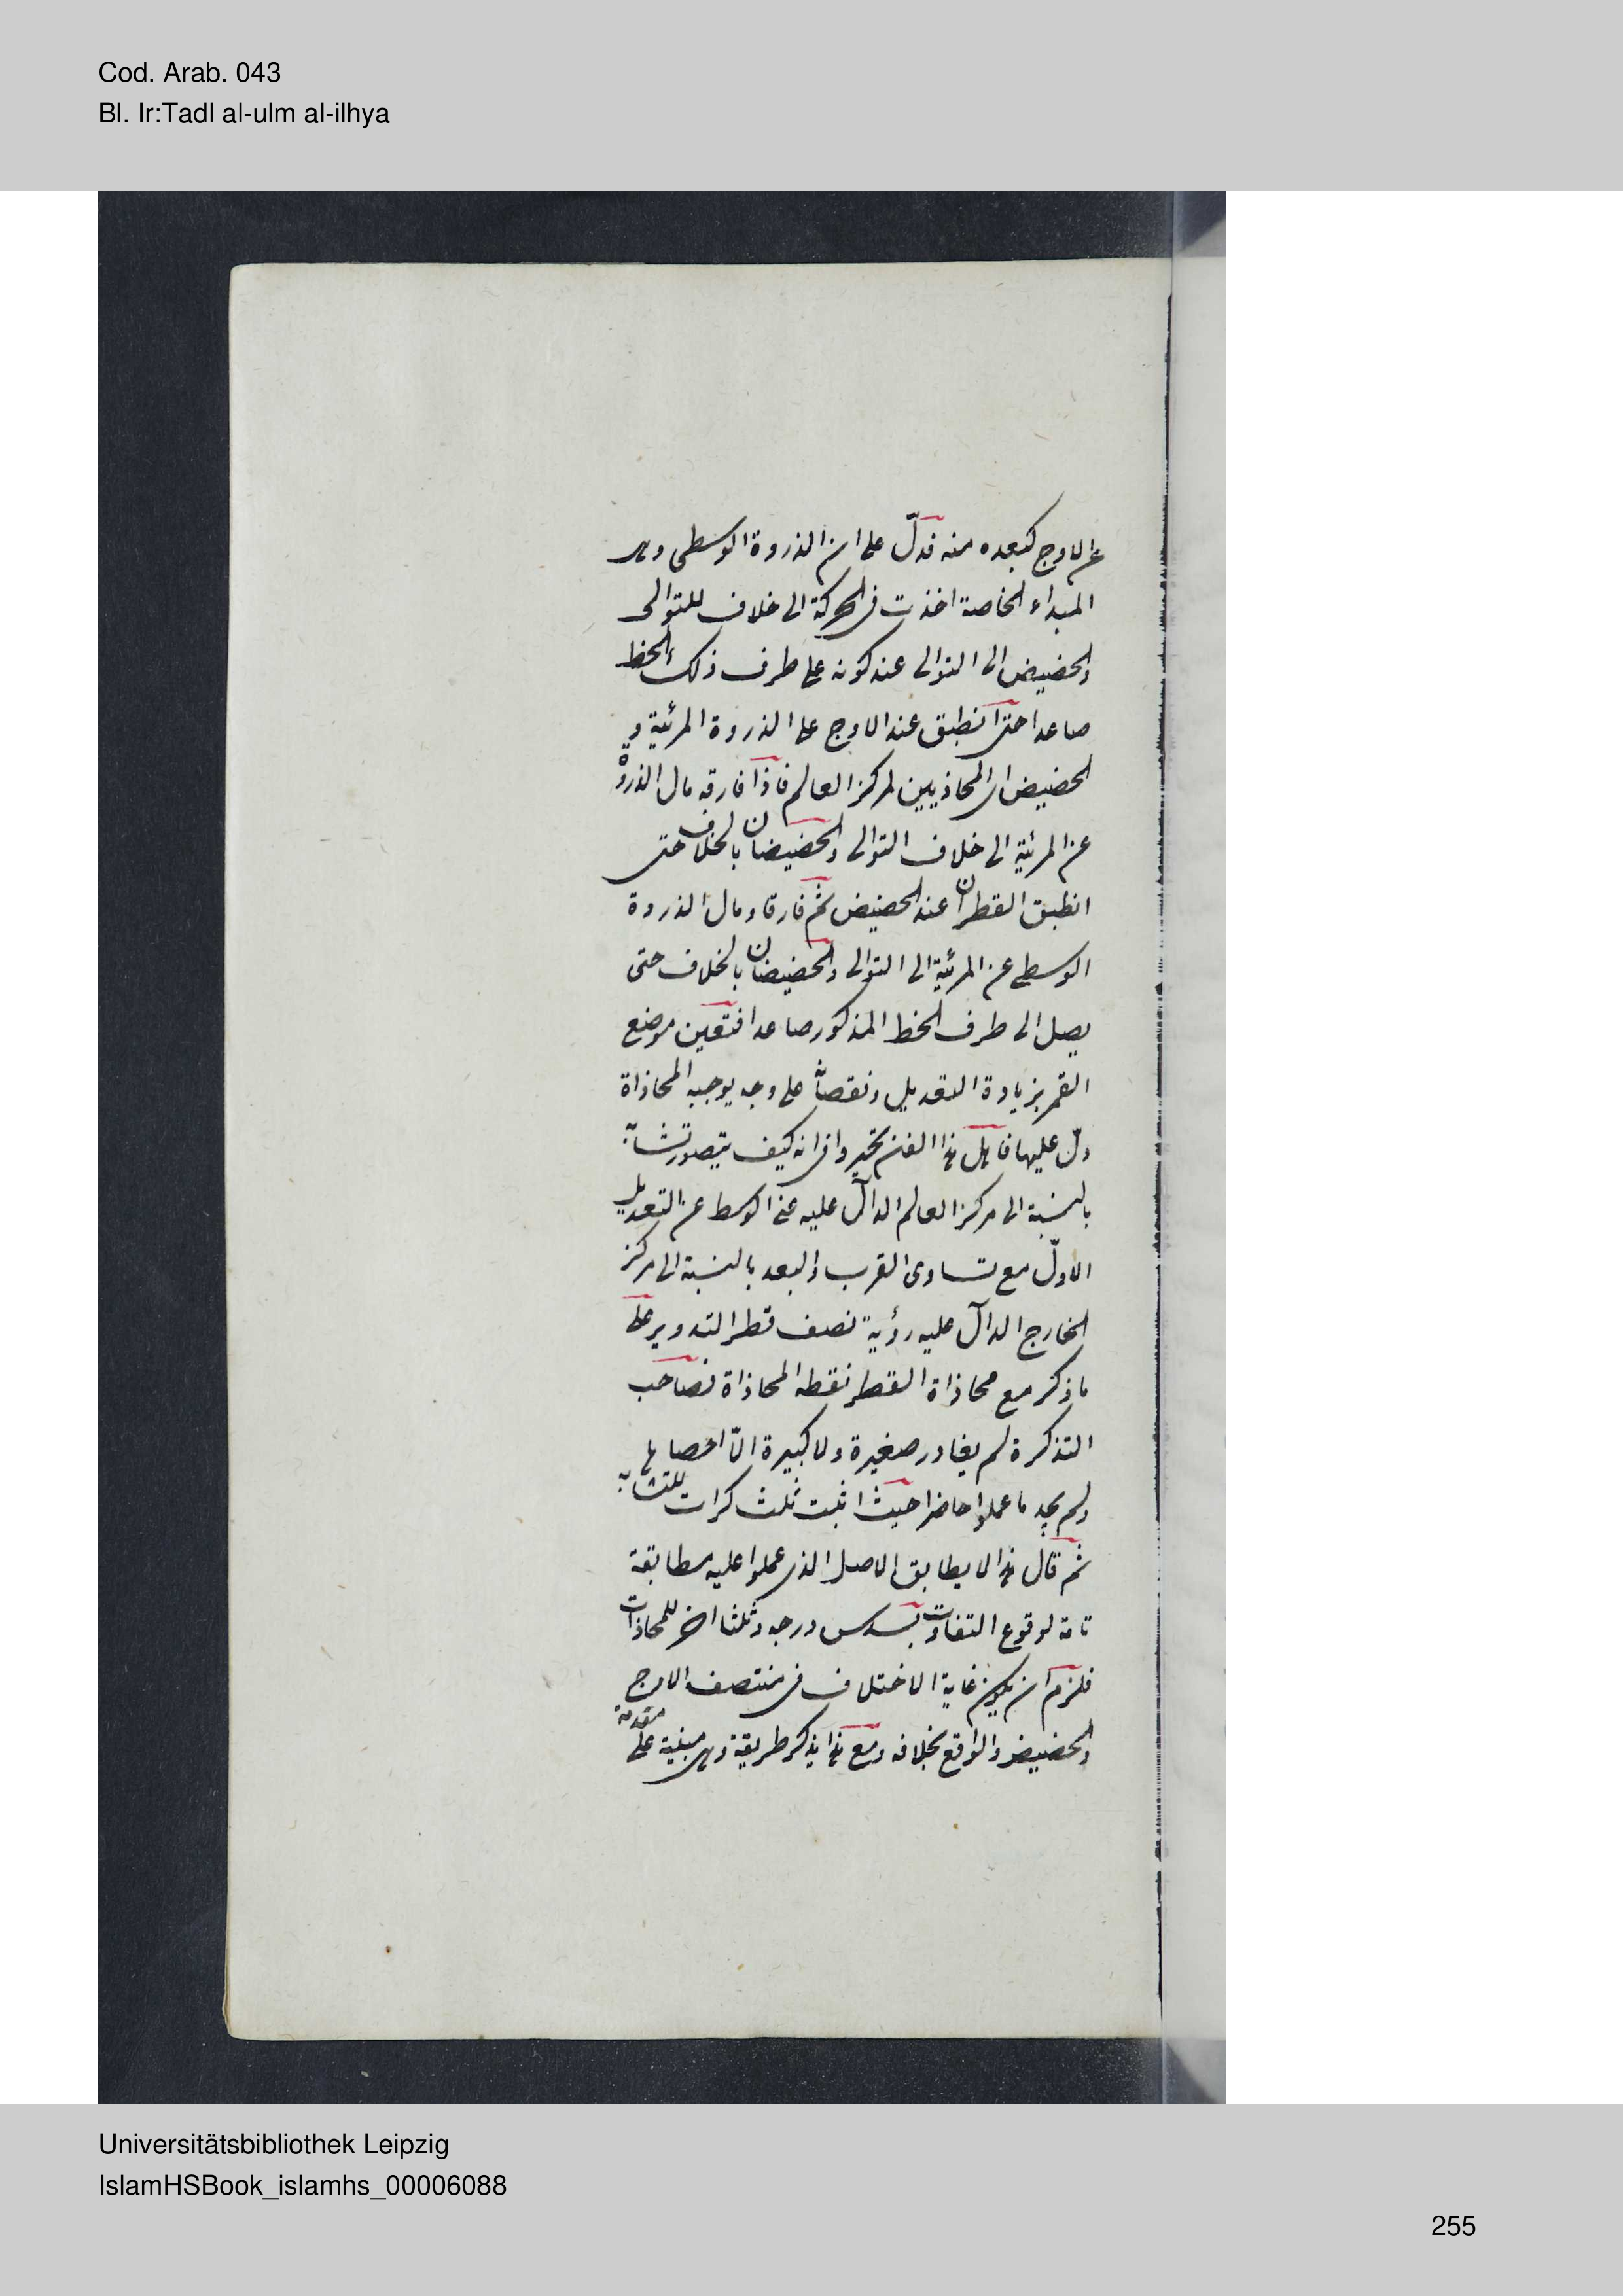 Cod. Arab. 043
Bl. Ir:Tadl al-ulm al-ilhya
عن الاوج كبعده منه فدلّ على ان الذروة الوسطى وهى
المبداء الخاصة اخذت فى الحركة الى خلاف للتوالى
والحضيض الى التوالى عند كونه على طرف ذلك الخط
صاعدا حتى انطبق عند الاوج على الذروة المرئية و
الحضيض اى المحاذيين لمركز العالم فاذا فارقه مال الذروة
عن المرئية الى خلاف التوالى والحضيضان بالخلاف حتى
انطبق القطران عند الحضيض ثم فارقا ومال الذروة
الوسطى عن المرئية الى التوالى والحضيضان بالخلاف حتى
يصل الى طرف الخط المذكور صاعدا فتعين موضع
القمر بزيادة التعديل ونقصانه على وجه يوجبه المحاذاة
دلّ عليها فاهل هذا الفن تحيروا فى انه كيف يتصور تشابه
بالنسبة الى مركز العالم الدالّ عليه غنى الوسط عن التعديل
الاوّل مع تساوى القرب والبعد بالنسبة الى مركز
الخارج الدالّ عليه رؤية نصف قطر التدوير على
ما ذكر مع محاذاة القطر نقطه المحاذاة فصاحب
التذكرة لم يغادر صغيرة ولا كبيرة الّا احصاها
ولم يجد ما عملوا حاضرا حيث اثبت ثلث كرات للتشابه
ثم قال هذا لا يطابق الاصل الذى عملوا عليه مطابقة
تامة لوقوع التفاوت بسدس درجه وثلثا اخر للمحاذات
فلزم ان يكون غاية الاختلاف فى منتصف الاوج
والحضيض والواقع بخلافه ومع هذا يذكر طريقة وهى مبنية على مقدمة
Universitätsbibliothek Leipzig
IslamHSBook_islamhs_00006088
255